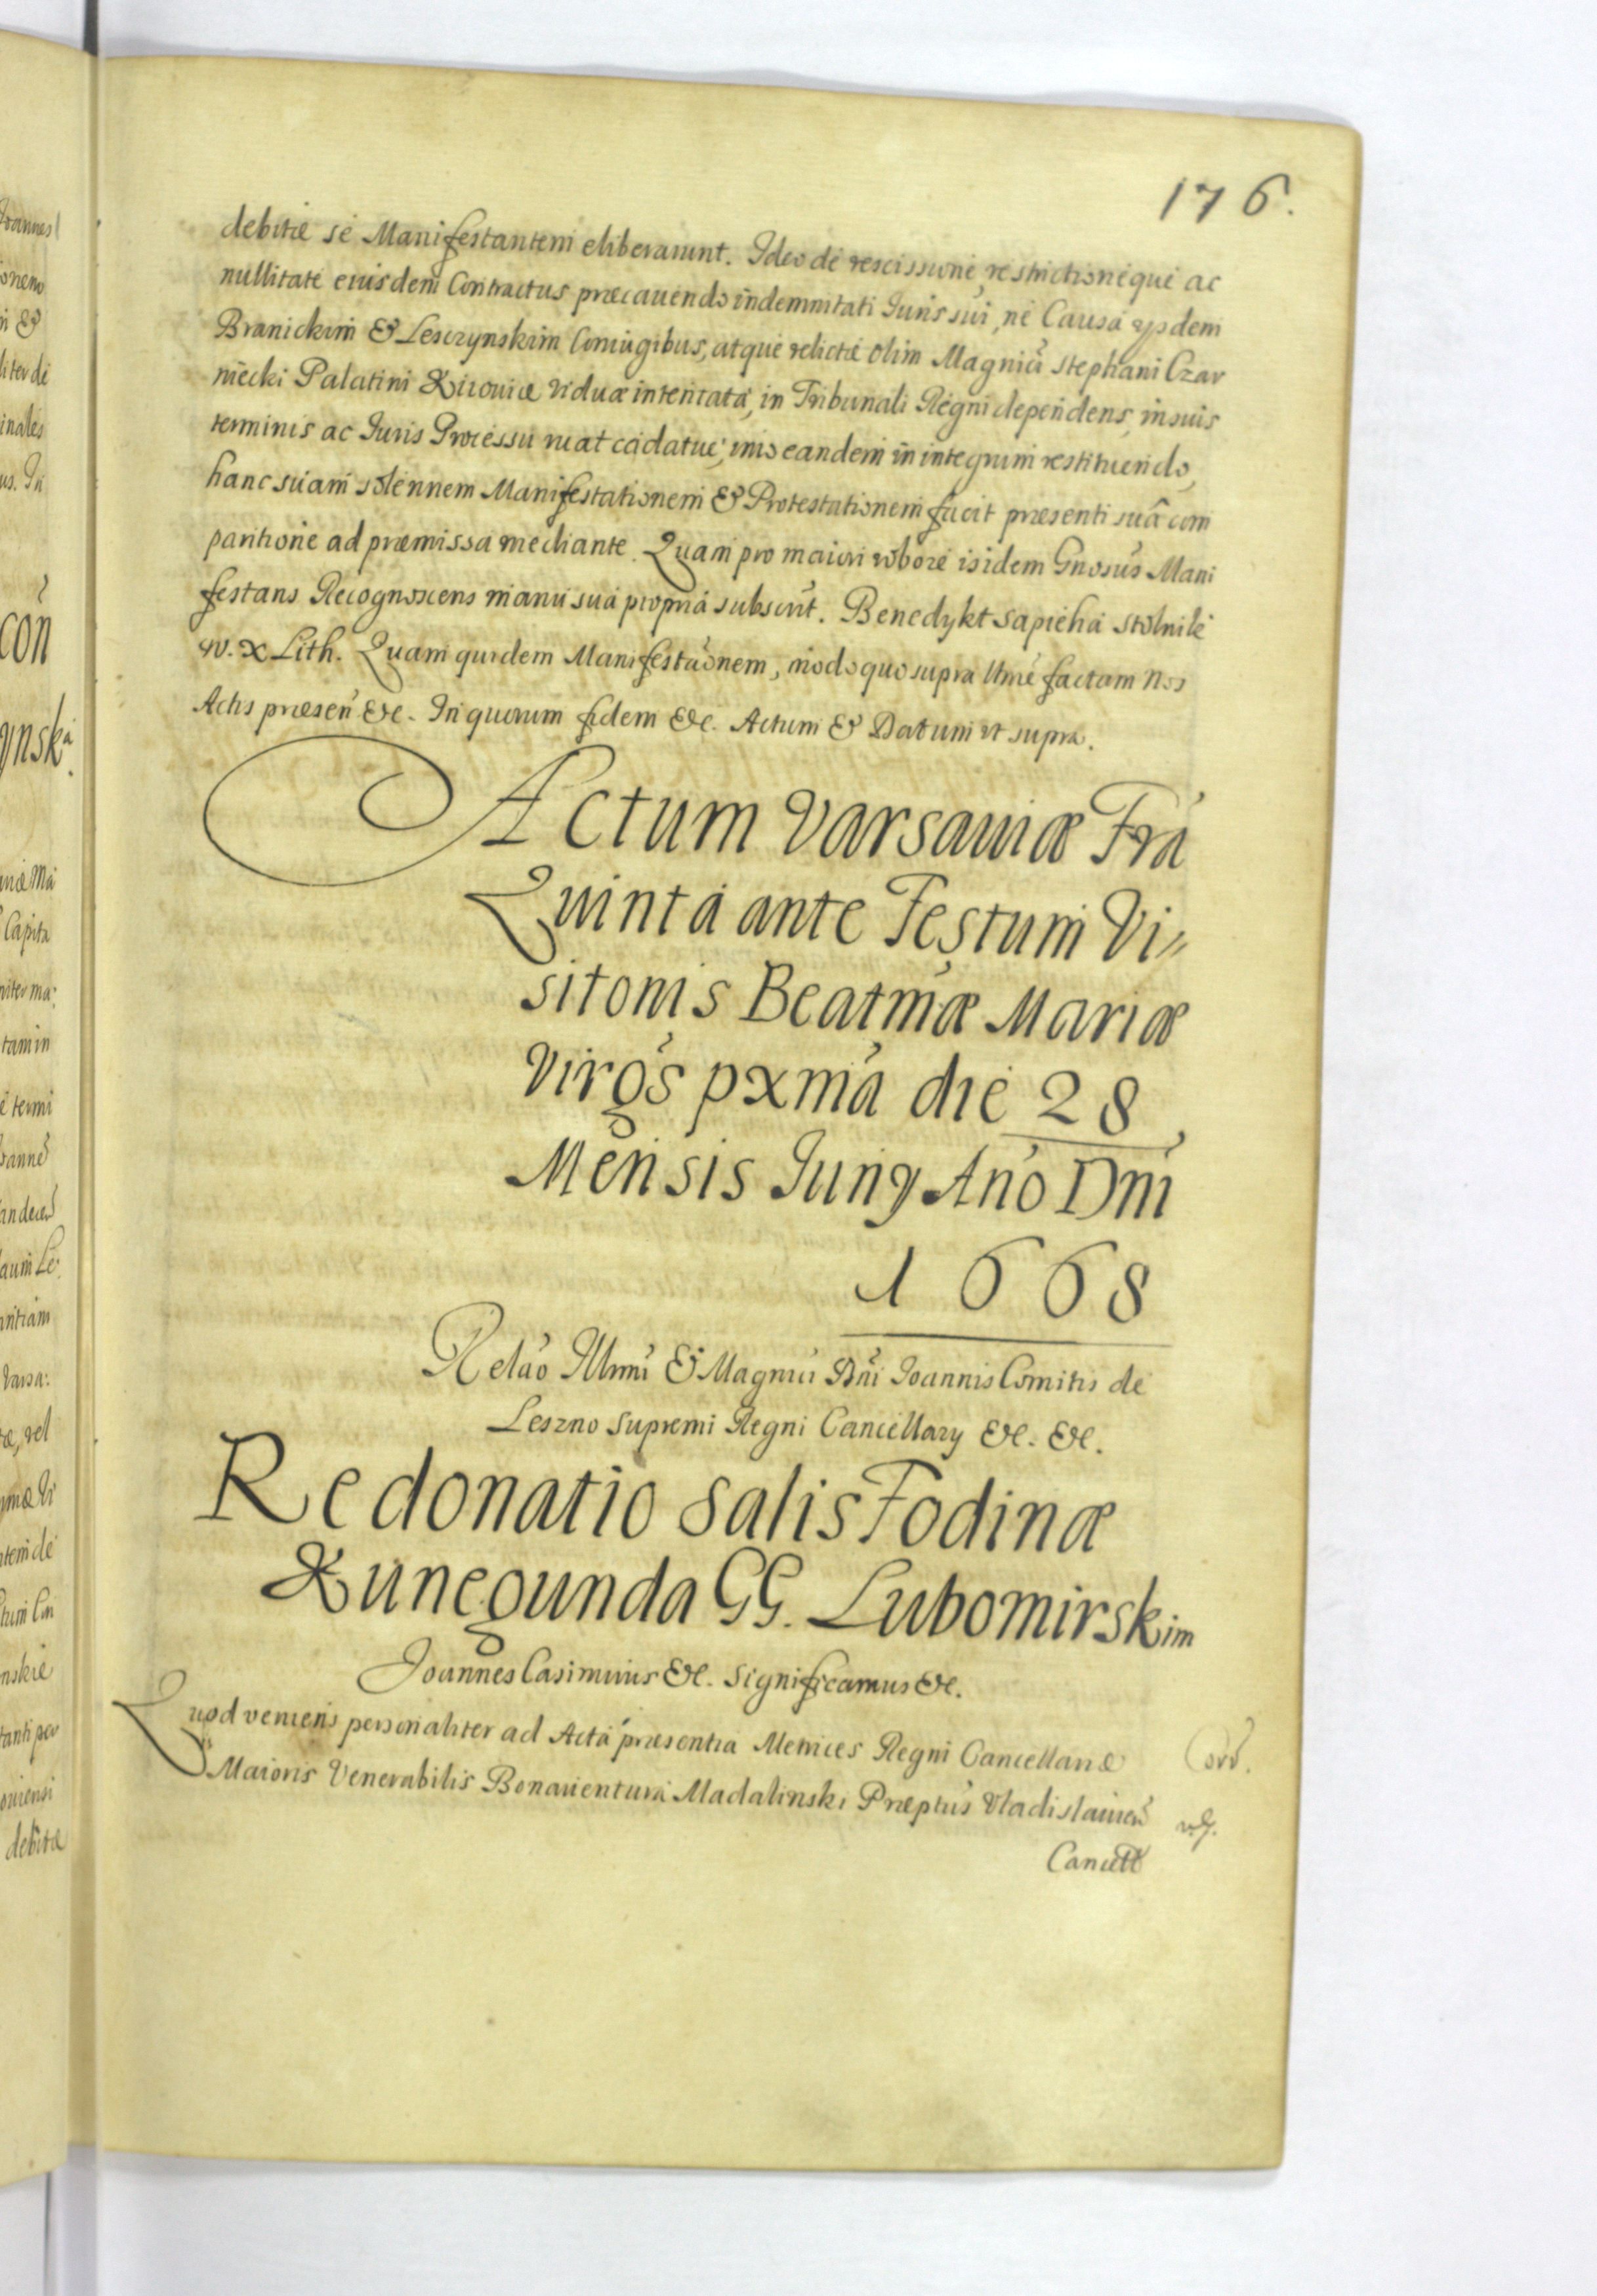 176.
debitæ se Manifestantem eliberarunt. Ideo de rescissione, restrictioneque ac
nullitate eiusdem Contractus præcavendo indemnitati Iuris sui, ne Causa ijsdem
Branickim & Lesczynskim Coniugibus, atque relictæ olim Magnici Stephani Czar
niecki Palatini Kijoviæ viduæ intentata, in Tribunali Regni dependens, in suis
terminis ac Iuris Processu ruat cadatve, imo eandem in integrum restituendo,
hanc suam solennem Manifestationem & Protestationem facit præsenti suâ com
paritione ad præmissa mediante. Quam pro maiori robore isidem Gnosus Mani
festans Recognoscens manu sua propria subscrit. Benedykt Sapieha Stolnik
W. X Lith. Quam quidem Manifestaonem, modo quo supra ... factam Nos
Actis præsen &c. In quorum fidem &c. Actum & Datum ut supra.
Actum Varsaviæ Fra
Quinta ante Festum Vi
sitonis Beatmæ Mariæ
Virgs pxma die 28
Mensis Iunij Ano Dni
1668
Relao Illmi & Magnici Dni Ioannis Comitis de
Leszno Supremi Regni Cancellarij &c. &c.
Redonatio Salis Fodinæ
Kunegunda GG. Lubomirskim
Joannes Casimirus &c. Significamus &c.
Quod veniens personaliter ad Acta præsentia Metrices Regni Cancellariæ
Maioris Venerabilis Bonaventura Madalinski Præptus Vladislavien
Cancell